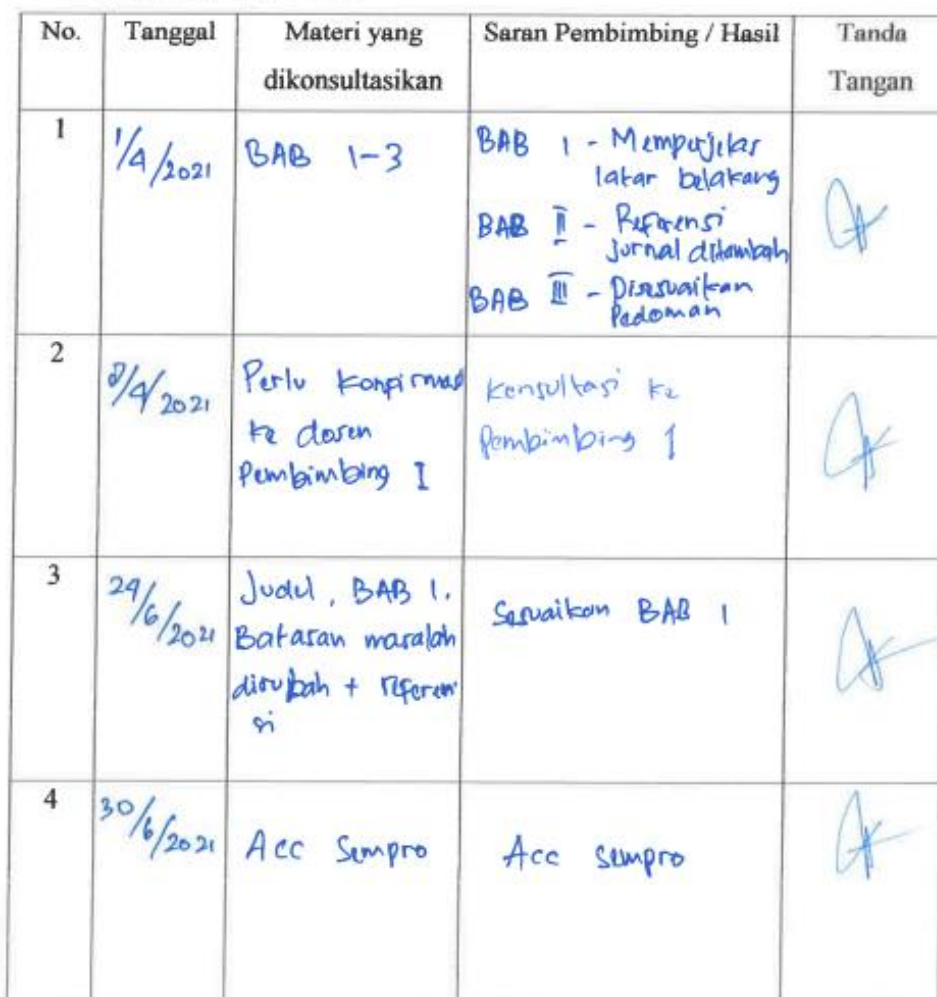 No. Tanggal Materi yang dikonsultasikan Saran Pembimbing / Hasil Tanda Tangan
1 1/4/2021 BAB 1-3 BAB 1 - Memperjelas
latar belakang
BAB II - Referensi
jurnal ditambah
BAB III - Disesuaikan
Pedoman
2 /4/2021 Perlu konfirmasi
ke dosen
Pembimbing I
konsultasi ke
Pembimbing 1
3 29/6/2021 Judul, BAB 1.
Batasan masalah
dirubah + referen
si
Sesuaikan BAB 1
4 30/6/2021 Acc Sempro Acc sempro